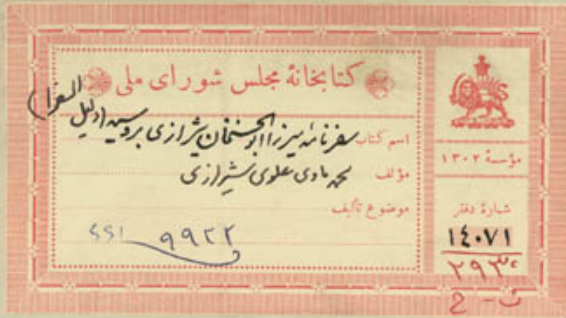 کتابخانهٔ مجلس شورای ملی
اسم کتاب سفرنامه میرزا ابوالحسنخان شیرازی بروسیه (دلیل السفرا)
مؤلف محمد هادی علوی شیرازی
موضوع تألیف
۹۹۲۲
مؤسسهٔ ۱۳۰۲
شمارهٔ دفتر
۱۴۰۷۱